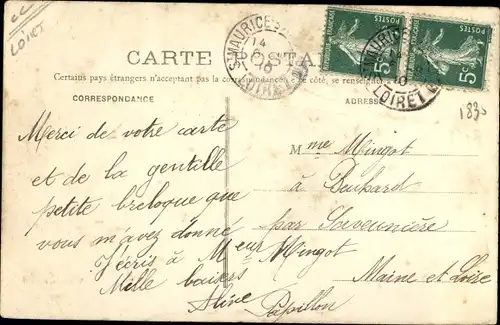 CC
LOIRET
CARTE POSTALE
Certains pays étrangers n'acceptant pas la correspondance de ce côté, se renseigner à la
CORRESPONDANCE
ADRESSE
1830
Merci de votre carte
et de la gentille
petite breloque que
vous m'avez donné
J'écris à Meur Mingot
Mille baisers
Alice Papillon
Mme Mingot
à
par Savennière
Maine et Loire
ST MAURICE
14
10
LOIRET
POSTES
5c
POSTES
5c
LOIRET